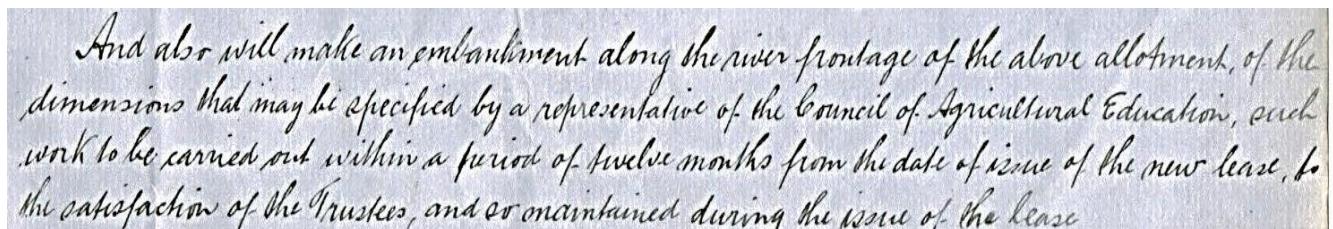 And also will make an embankment along the river frontage of the above allotment, of the
dimensions that may be specified by a representative of the Council of Agricultural Education, such
work to be carried out within a period of twelve months from the date of issue of the new lease, to
the satisfaction of the Trustees, and so maintained during the issue of the lease